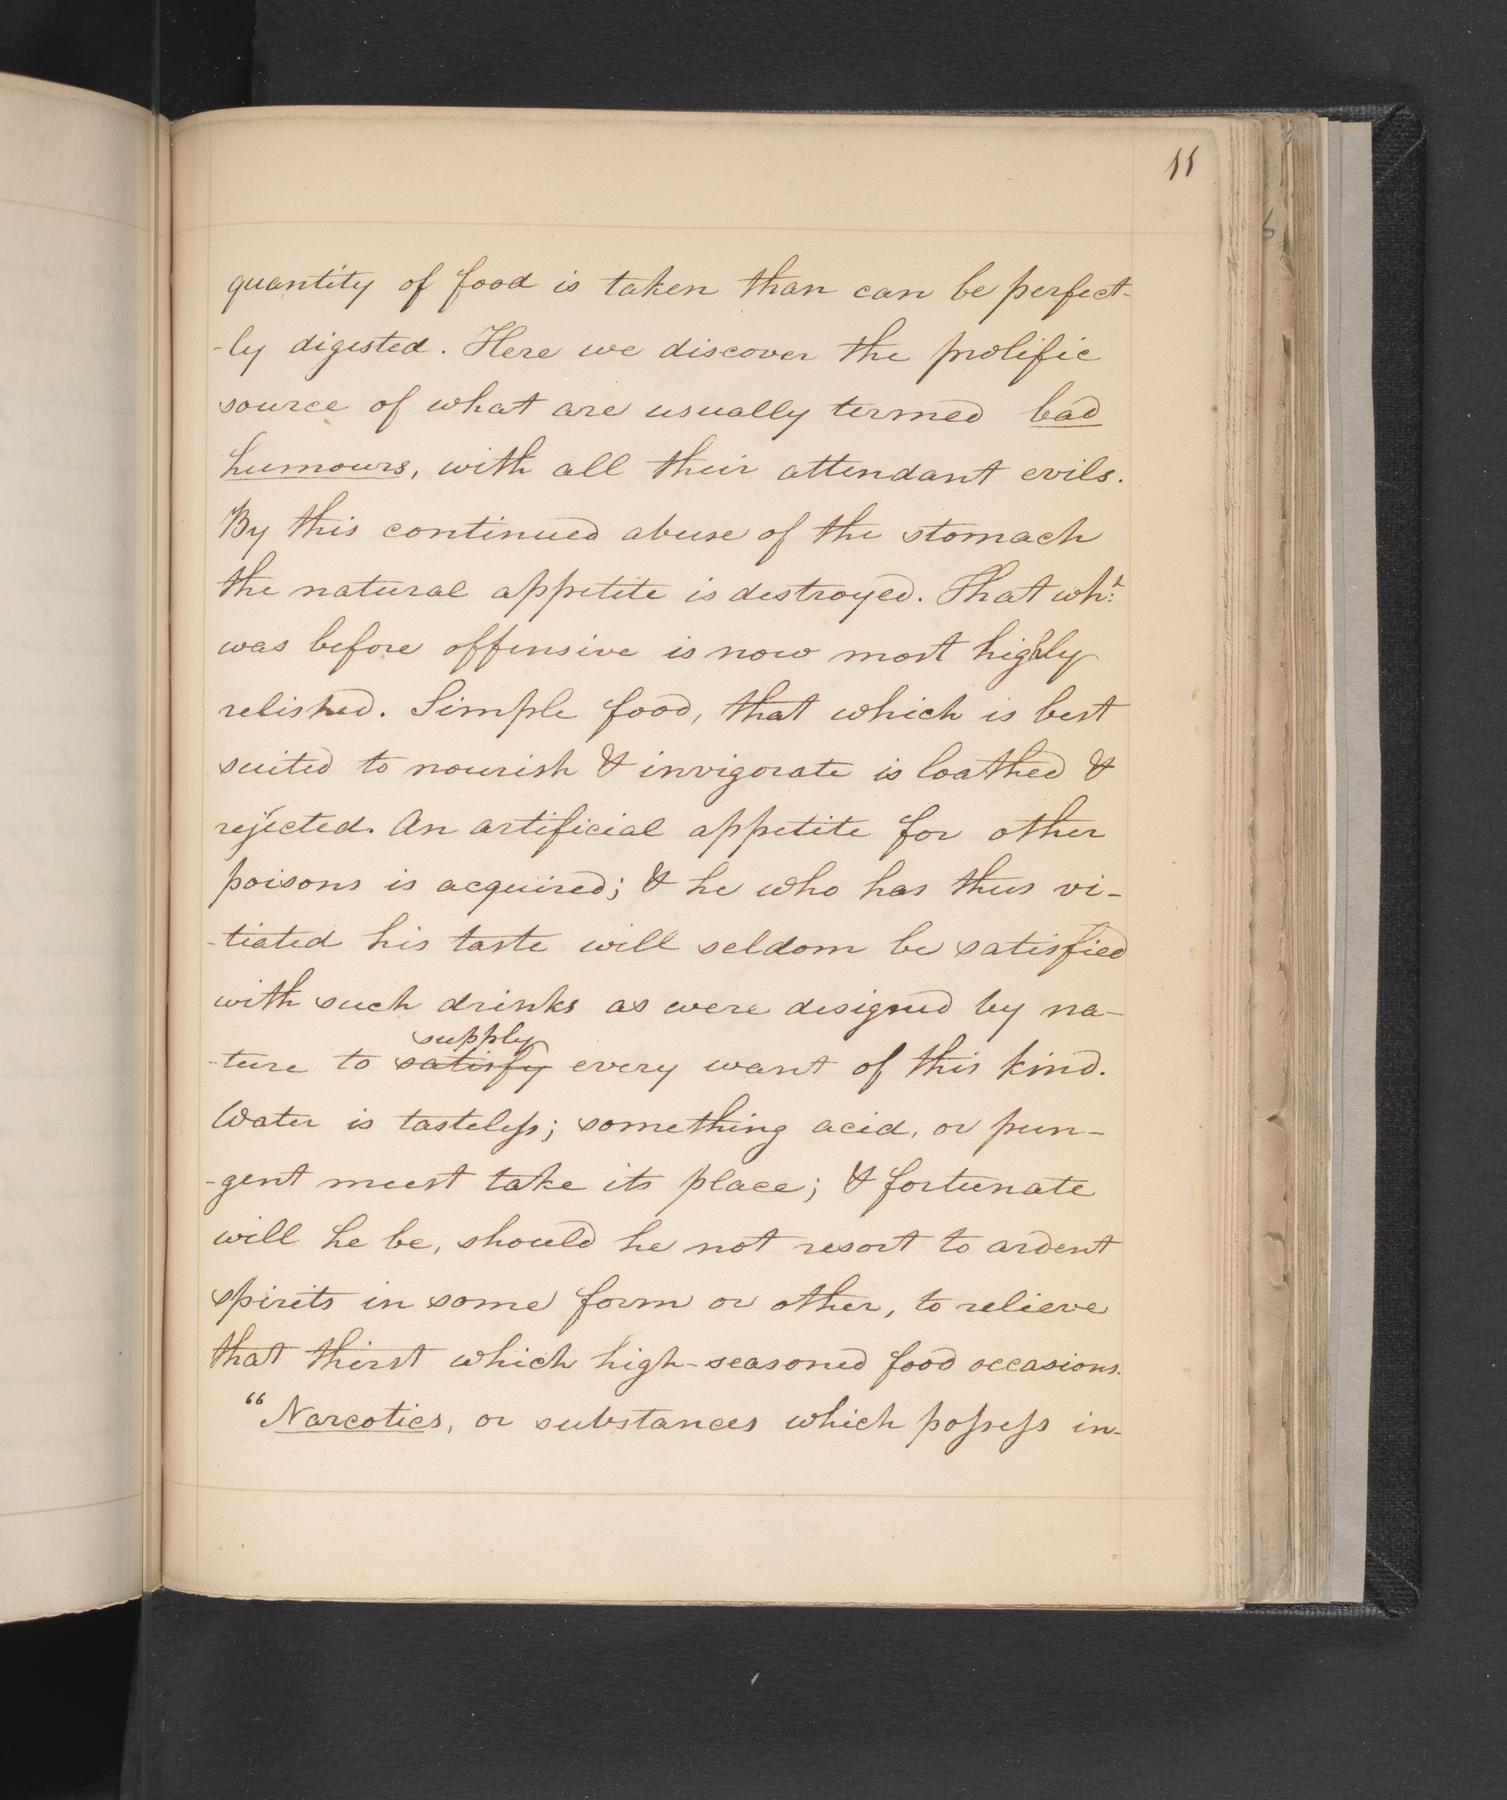 11
quantity of food is taken than can be perfect-
-ly digested. Here we discover the prolific
source of what are usually termed bad
humours, with all their attendant evils.
By this continued abuse of the stomach
the natural appetite is destroyed. That wh.t
was before offensive is now most highly
relished. Simple food, that which is best
suited to nourish & invigorate is loathed &
rejected. An artificial appetite for other
poisons is acquired; & he who has thus vi-
-tiated his taste will seldom be satisfied
with such drinks as were designed by na-
supply
-ture to satisfy every want of this kind.
Water is tasteless; something acid, or pun-
-gent must take its place; & fortunate
will he be, should he not resort to ardent
spirits in some form or other, to relieve
that thirst which high-seasoned food occasions.
"Narcotics, or substances which possess in-